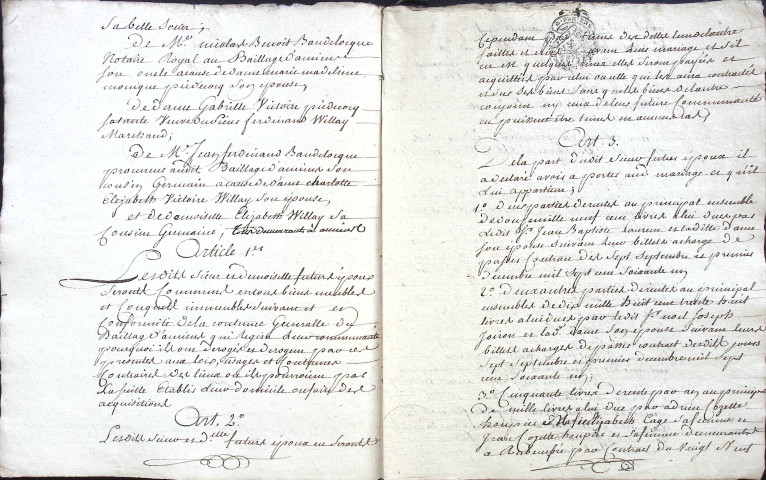 Sa belle Soeur;
De Me. nicolas Benoit Baudelocque
Notaire Royal au Bailliage d'amiens
son oncle a cause de dame marie madeleine
monique pieducoq son epouse,
de dame Gabrielle Victoire pieducoq
sa tante Veuve du sieur ferdinand Willay
Marchand;
De Me. Jean ferdinand Baudelocque
procureur audit Bailliage d'amiens son
cousin Germain a cause de dame charlotte
Elizabeth Victoire Willay son epouse,
et de demoiselle Elizabeth Willay sa
Cousine Germaine, tous demeurants a amiens
Article 1er
Lesdits sieur et demoiselle futurs epoux
seront Communs en tous biens meubles
et Conquets immeubles suivant et en
Conformité de la coutume Generalle du
Bailliage d'amiens qui regira leur communauté
pourquoi ils ont derogé et derogent par ces
presentes aux loix, usages et coutumes
Contraires des lieux ou ils pourroient par
la suitte Etablir leur domicile ou faire des
acquisitions
Art. 2e
Lesdits sieur et dlle futurs epoux ne seront
cependant des dettes l'un de l'autre
faittes et avant leur mariage et s'il
en est quelques unes elles seront payées et
acquittées par celui ou celle qui les aura contractés
et sur ses biens sans que les biens de l'autre
conjoint ny ceux de leur future Communauté
en puissent être tenus en aucun cas,
Art. 3.
De la part dudit sieur futur epoux il
a declaré avoir a porter audit mariage et qu'il
lui appartient;
1o. Deux parties de rentes au principal ensemble
de douze mille neuf cent livres a lui dues par
ledit Sr. Jean Baptiste Laurent et laditte dame
son epouse suivant leurs billets a charge de
passer Contrat des Sept Septembre et premier
decembre mil sept cent soixante un,
2o. Deux autres parties de rentes au principal
ensemble de dix mille huit cent trente huit
livres a lui dues par ledit Sr. noel Joseph
Joiron et lad. dame son epouse suivant leurs
billets a charge de passer contract desdits jours
sept Septembre et premier decembre mil sept
cent soixante un;
3o. Cinquante livres de rente par an au principal
de mille livres a lui due par adrien Cozette
et Marie Elizabeth sa femme et
Jean Cozette et sa femme demeurants
a Rubempré par Contract du Vingt Neuf